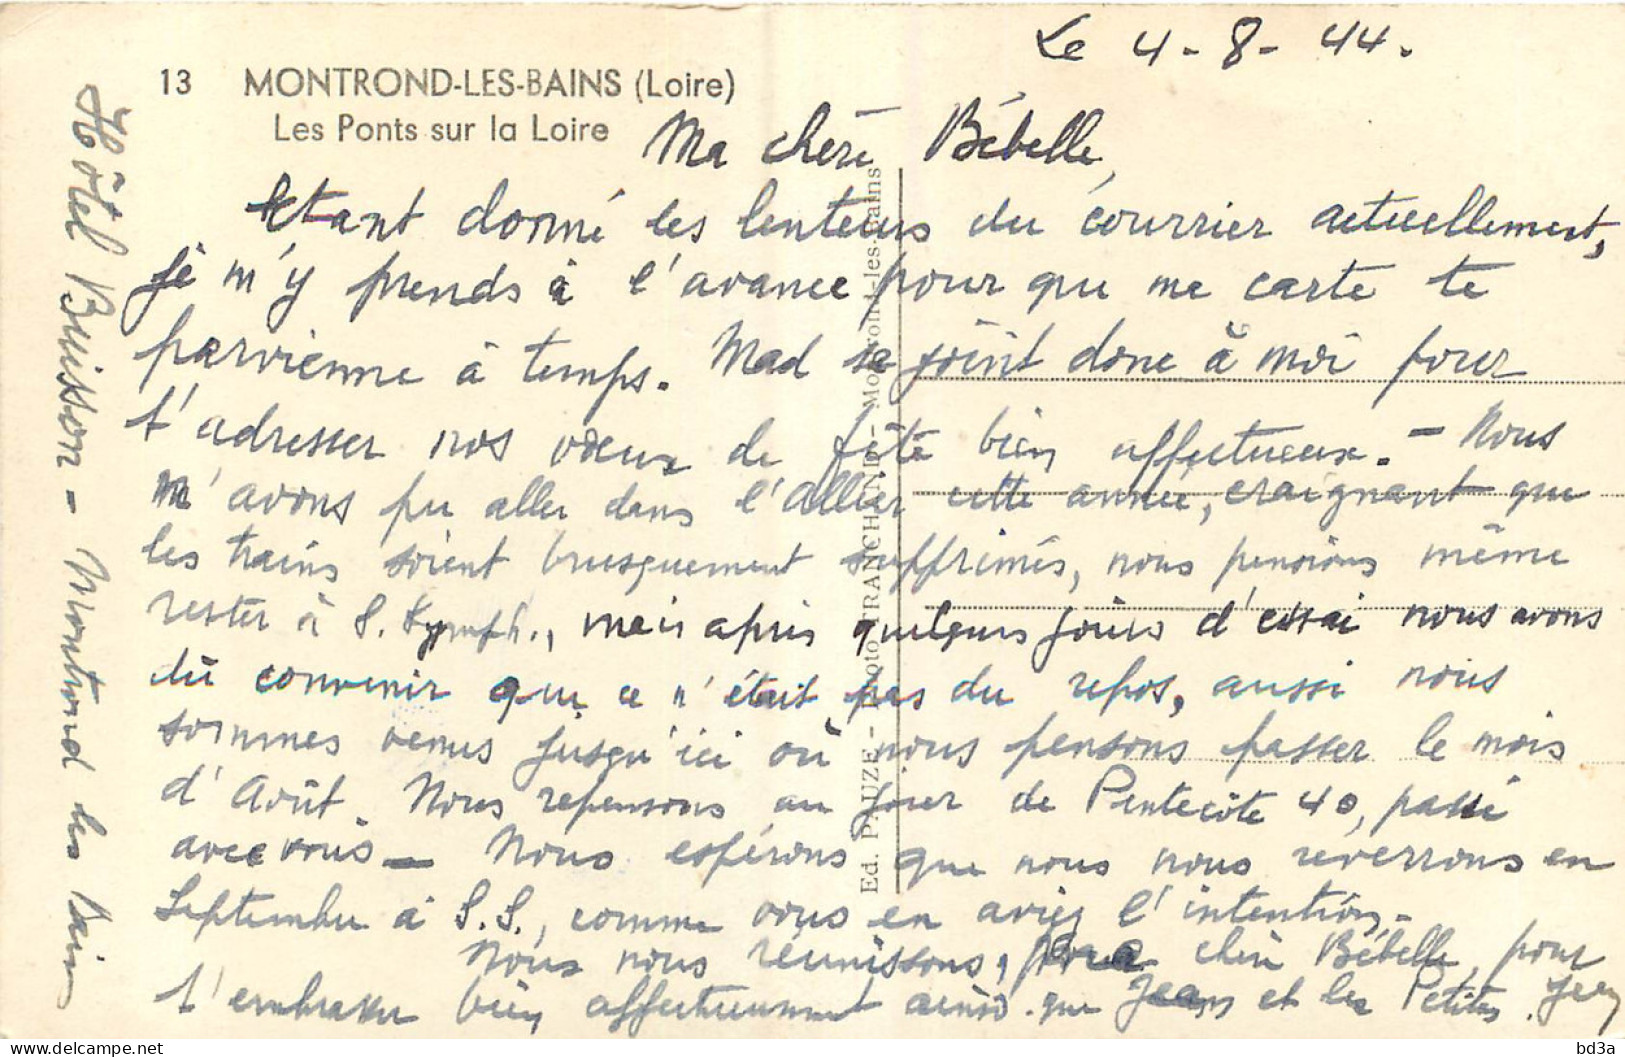 Le 4-8-44.
13 MONTROND-LES-BAINS (Loire)
Les Ponts sur la Loire
Ma chère Bébelle,
Etant donné les lenteurs du courrier actuellement,
je m'y prends à l'avance pour que ma carte te
parvienne à temps. Mad se joint donc à moi pour
t'adresser nos vœux de fête bien affectueux. - Nous
n'avons pu aller dans l'Allier cette année, craignant que
les trains soient brusquement supprimés, nous pensions même
rester à S. Symph., mais après quelques jours d'essai nous avons
dû convenir que ce n'était pas du repos, aussi nous
sommes venus jusqu'ici où nous pensons passer le mois
d'Août. Nous repensons au jour de Pentecôte 40, passé
avec vous - Nous espérons que nous nous reverrons en
Septembre à S.S., comme vous en aviez l'intention.
Nous nous réunissons, chère Bébelle, pour
t'embrasser bien affectueusement ainsi que Jean et les Petites.
Hôtel Buisson - Montrond les Bains
Ed. PAUZE - Photo FRANCHAND - Montrond-les-Bains
bd3a